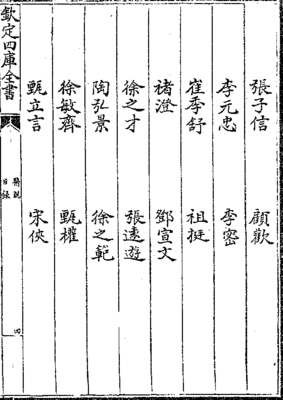 張子信 顧歡
李元忠 李密
崔季舒 祖挺
褚澄 鄧宣文
徐之才 張遠遊
陶弘景 徐之範
徐敏齊 甄權
甄立言 宋俠
欽定四庫全書
醫說
目錄
四